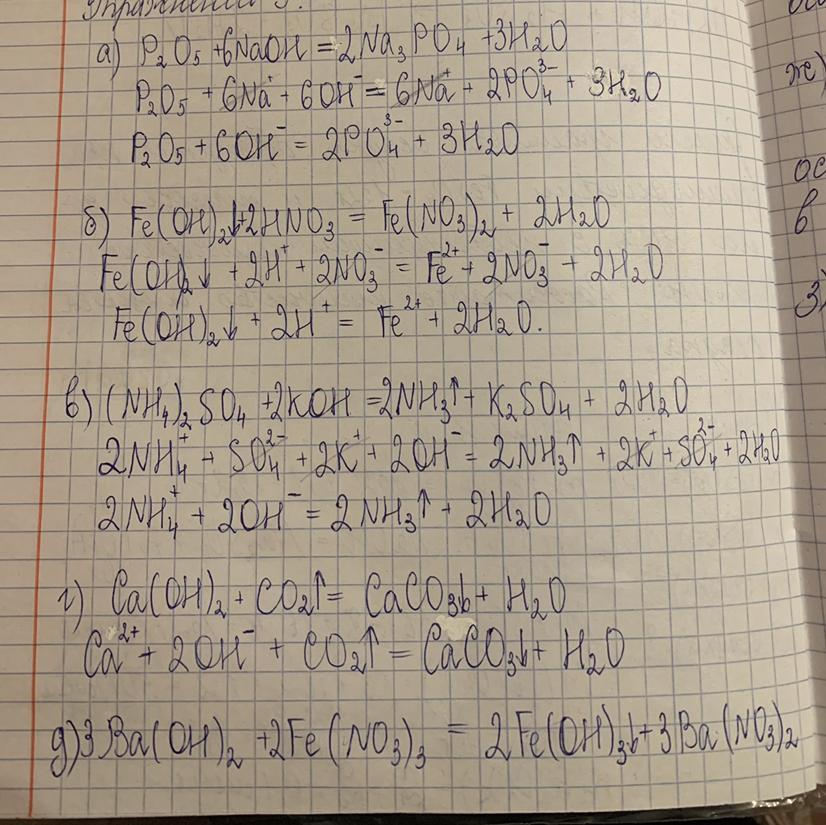 Упражнения 3.
а) P₂O₅ + 6NaOH = 2Na₃PO₄ + 3H₂O
P₂O₅ + 6Na⁺ + 6OH⁻ = 6Na⁺ + 2PO₄³⁻ + 3H₂O
P₂O₅ + 6OH⁻ = 2PO₄³⁻ + 3H₂O
б) Fe(OH)₂↓ + 2HNO₃ = Fe(NO₃)₂ + 2H₂O
Fe(OH)₂↓ + 2H⁺ + 2NO₃⁻ = Fe²⁺ + 2NO₃⁻ + 2H₂O
Fe(OH)₂↓ + 2H⁺ = Fe²⁺ + 2H₂O.
в) (NH₄)₂SO₄ + 2KOH = 2NH₃↑ + K₂SO₄ + 2H₂O
2NH₄⁺ + SO₄²⁻ + 2K⁺ + 2OH⁻ = 2NH₃↑ + 2K⁺ + SO₄²⁻ + 2H₂O
2NH₄⁺ + 2OH⁻ = 2NH₃↑ + 2H₂O
г) Ca(OH)₂ + CO₂↑ = CaCO₃↓ + H₂O
Ca²⁺ + 2OH⁻ + CO₂↑ = CaCO₃↓ + H₂O
д) 3Ba(OH)₂ + 2Fe(NO₃)₃ = 2Fe(OH)₃↓ + 3Ba(NO₃)₂
ж)
ос
в
3